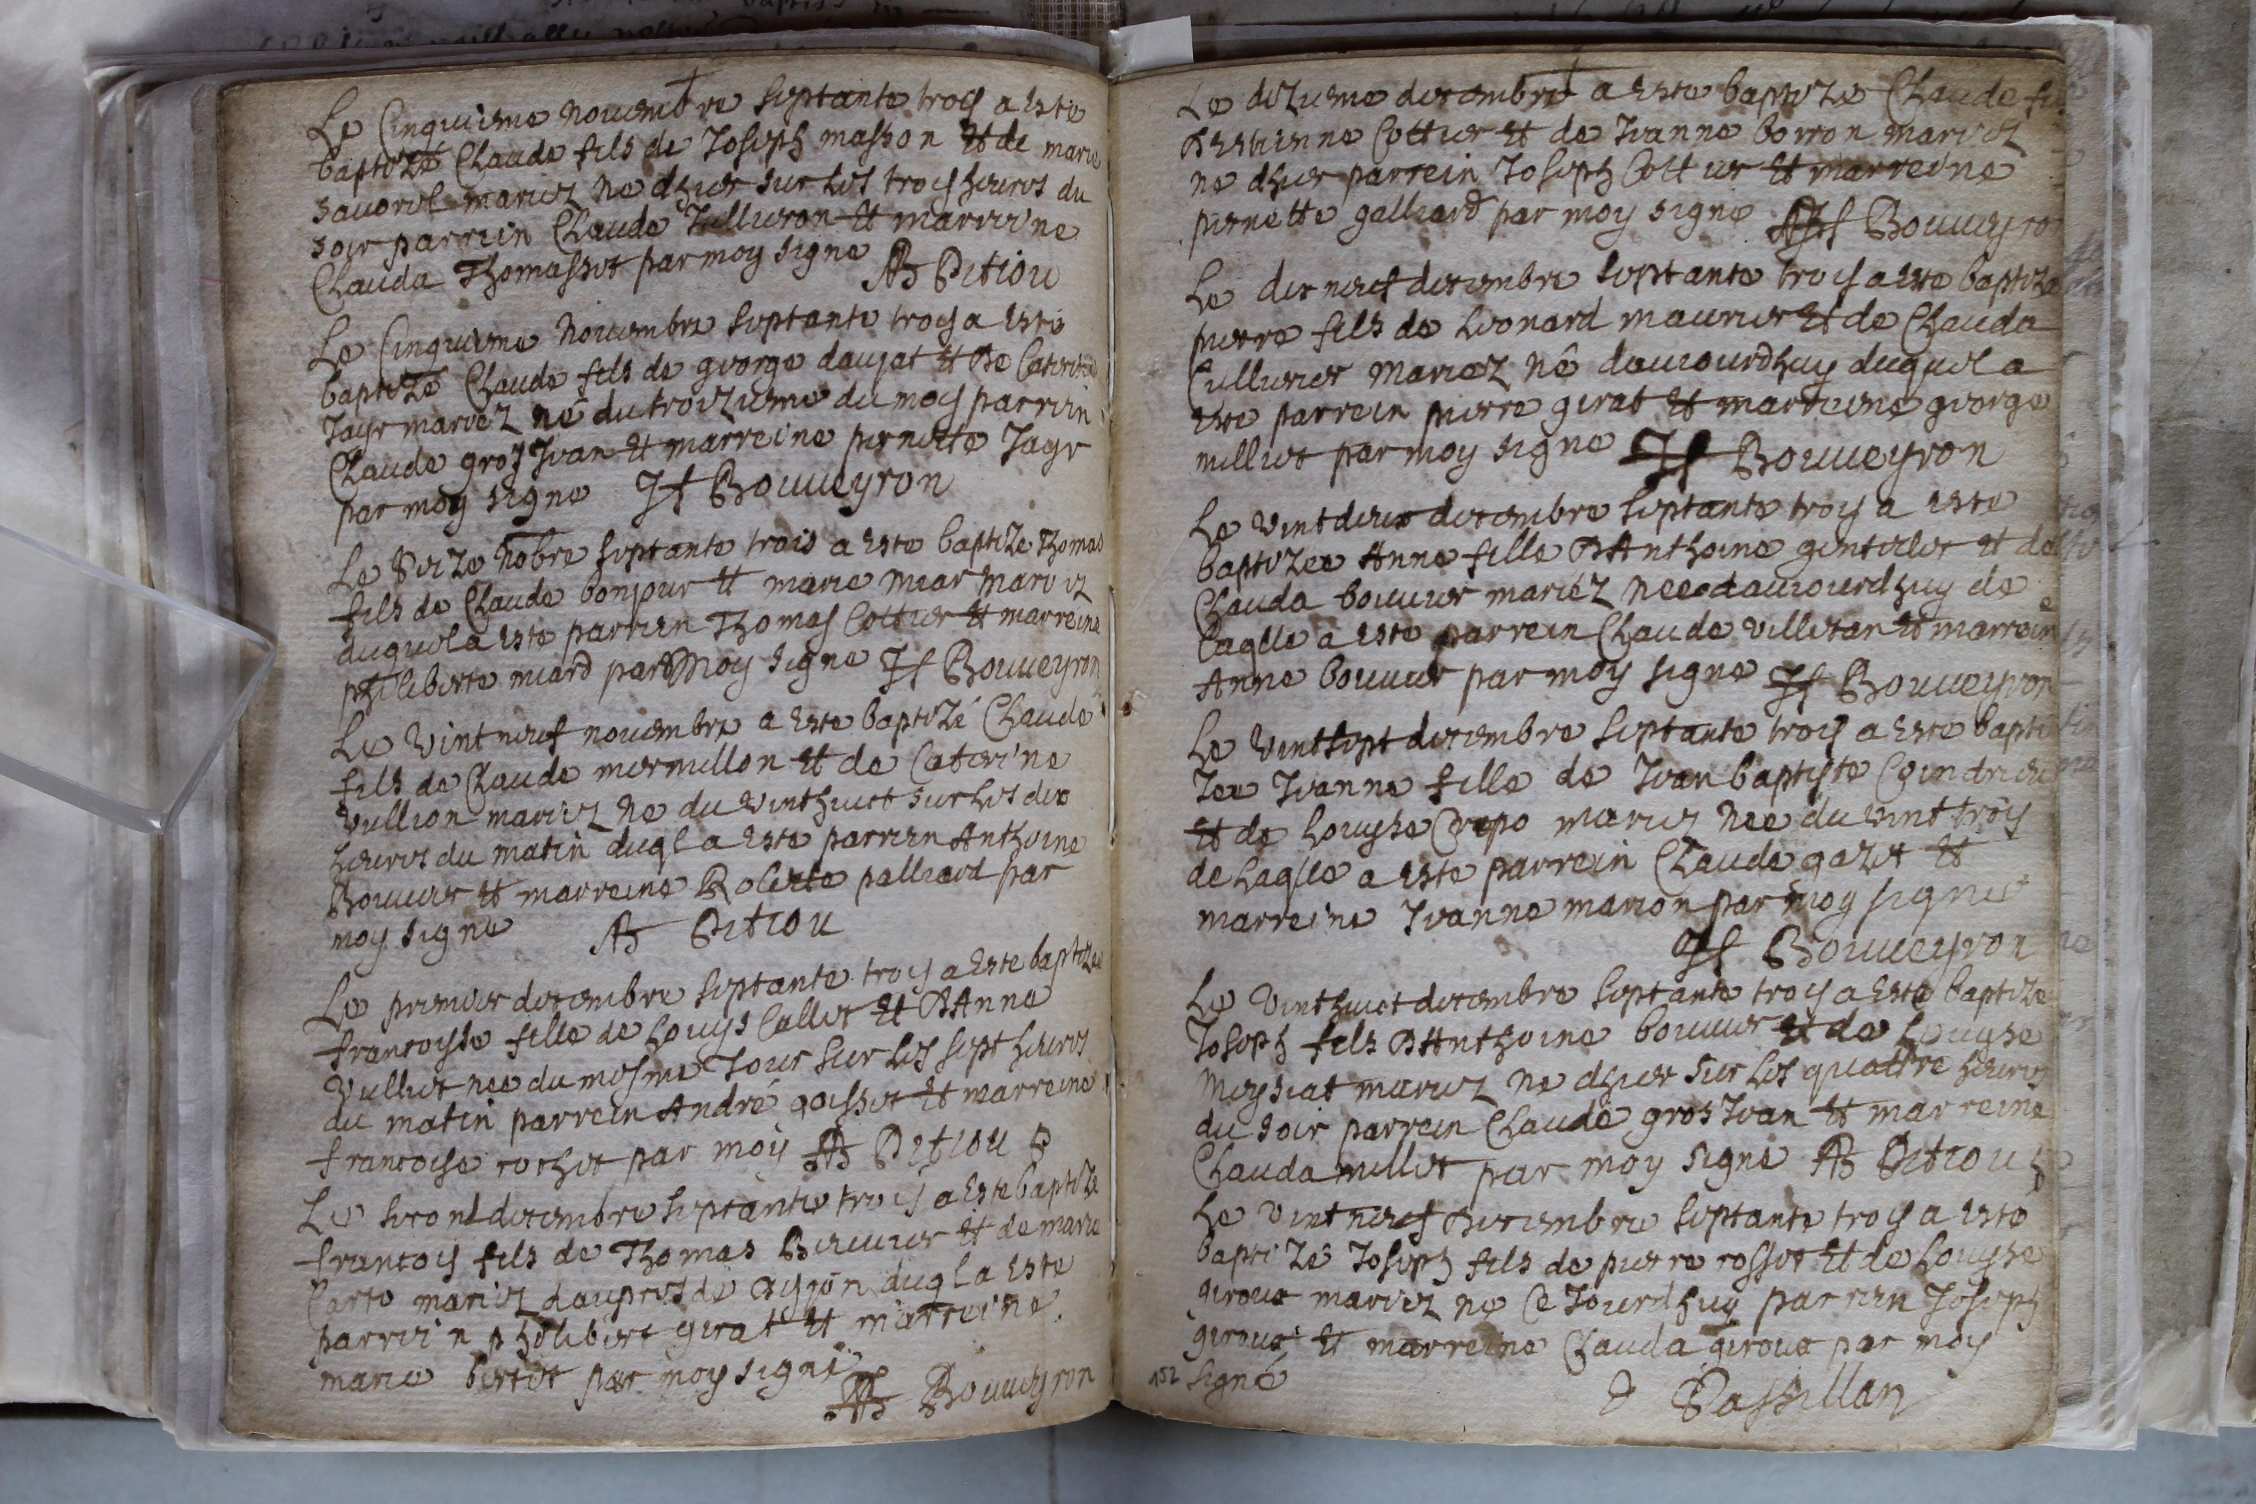 Le Cinquieme novembre septante trois a este
baptizé Claude fils de Joseph masson et de marie
savorel mariez ne dhier sur les trois heures du
soir parrein Claude Tullieron et marreine
Clauda Thomasset par moy signe AB Pitiou
Le Cinquieme novembre septante trois a este
baptizé Claude fils de george daujat et de Caterine
Jayr mariez né du troizieme du mois parrein
Claude gros Jean et marreine pernette Jayr
par moy signe Jf Bouveyron
Le seize nobre septante trois a este baptize Thomas
fils de Claude bonjour et marie miar mariez
duquel a este parrein Thomas Cottier et marreine
philiberte miard par moy signe Jf Bouveyron
Le vint neuf novembre a este baptizé Claude
fils de Claude mermillon et de Caterine
vullion mariez ne du vinthuict sur les dix
heures du matin duql a este parrein Anthoine
Bouvier et marreine Roberte palliard par
moy signe AB Pitiou
Le premier decembre septante trois a este baptizee
francoyse fille de Louys Collet et d'Anne
vulliet nee du mesme Jour sur les sept heures
du matin parrein André goisset et marreine
francoise rochet par moy AB Pitiou
Le second decembre septante trois a este baptize
francois fils de Thomas Bouvier et de marie
Carro mariez daupres de duql a este
parrein philibert girat et marreine
marie bertet par moy signe Bouveyron
Le dizieme decembre a este baptize Claude fils
d'Estienne Cottier et de Jeanne borron mariez
ne dhier parrein Joseph Cottier et marreine
pernette galliard par moy signe Bouveyron
Le dix neuf decembre septante trois a este baptize
pierre fils de Leonard maurier et de Clauda
Cullierier mariez né daujourdhuy duquel a
este parrein pierre girat et marreine george
milliet par moy signe Jf Bouveyron
Le vint deux decembre septante trois a este
baptizee Anne fille d'Anthoine gentilet et de
Clauda bouvier mariéz nee daujourdhuy de
laqlle a este parrein Claude villetan et marreine
Anne bouvier par moy signe Jf Bouveyron
Le vintsept decembre septante trois a este bapti
zee Jeanne fille de Jean baptiste Coindrieu
et de Louyse Crepo mariez nee du vint trois
de laqlle a este parrein Claude gazet et
marreine Jeanne marion par moy signe
Jf Bouveyron
Le vinthuict decembre septante trois a este baptize
Joseph fils d'Anthoine bouvier et de Louyse
meysiat mariez ne dhier sur les quattre heures
du soir parrein Claude gros Jean et marreine
Clauda millet par moy signe AB Pitiou
Le vint neuf decembre septante trois a este
baptizé Joseph fils de pierre rosset et de Louyse
giroue mariez ne ce Jourdhuy parrein Joseph
giroue et marreine Clauda giroue par moy
152 signé Passillan